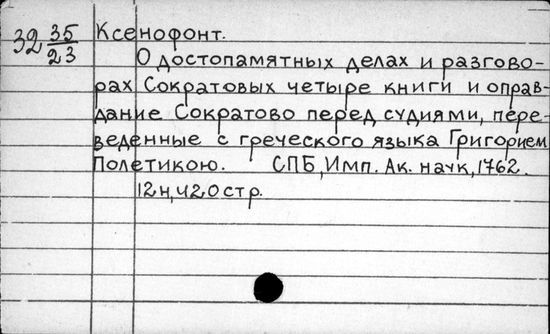 32 35/23
Ксенофонт.
О достопамятных делах и разгово-
рах Сократовых четыре книги и оправ-
дание Сократово перед судиями, пере-
веденные с греческого языка Григорием
Полетикою. СПБ, Имп. Ак. наук, 1762.
12н, 420 стр.